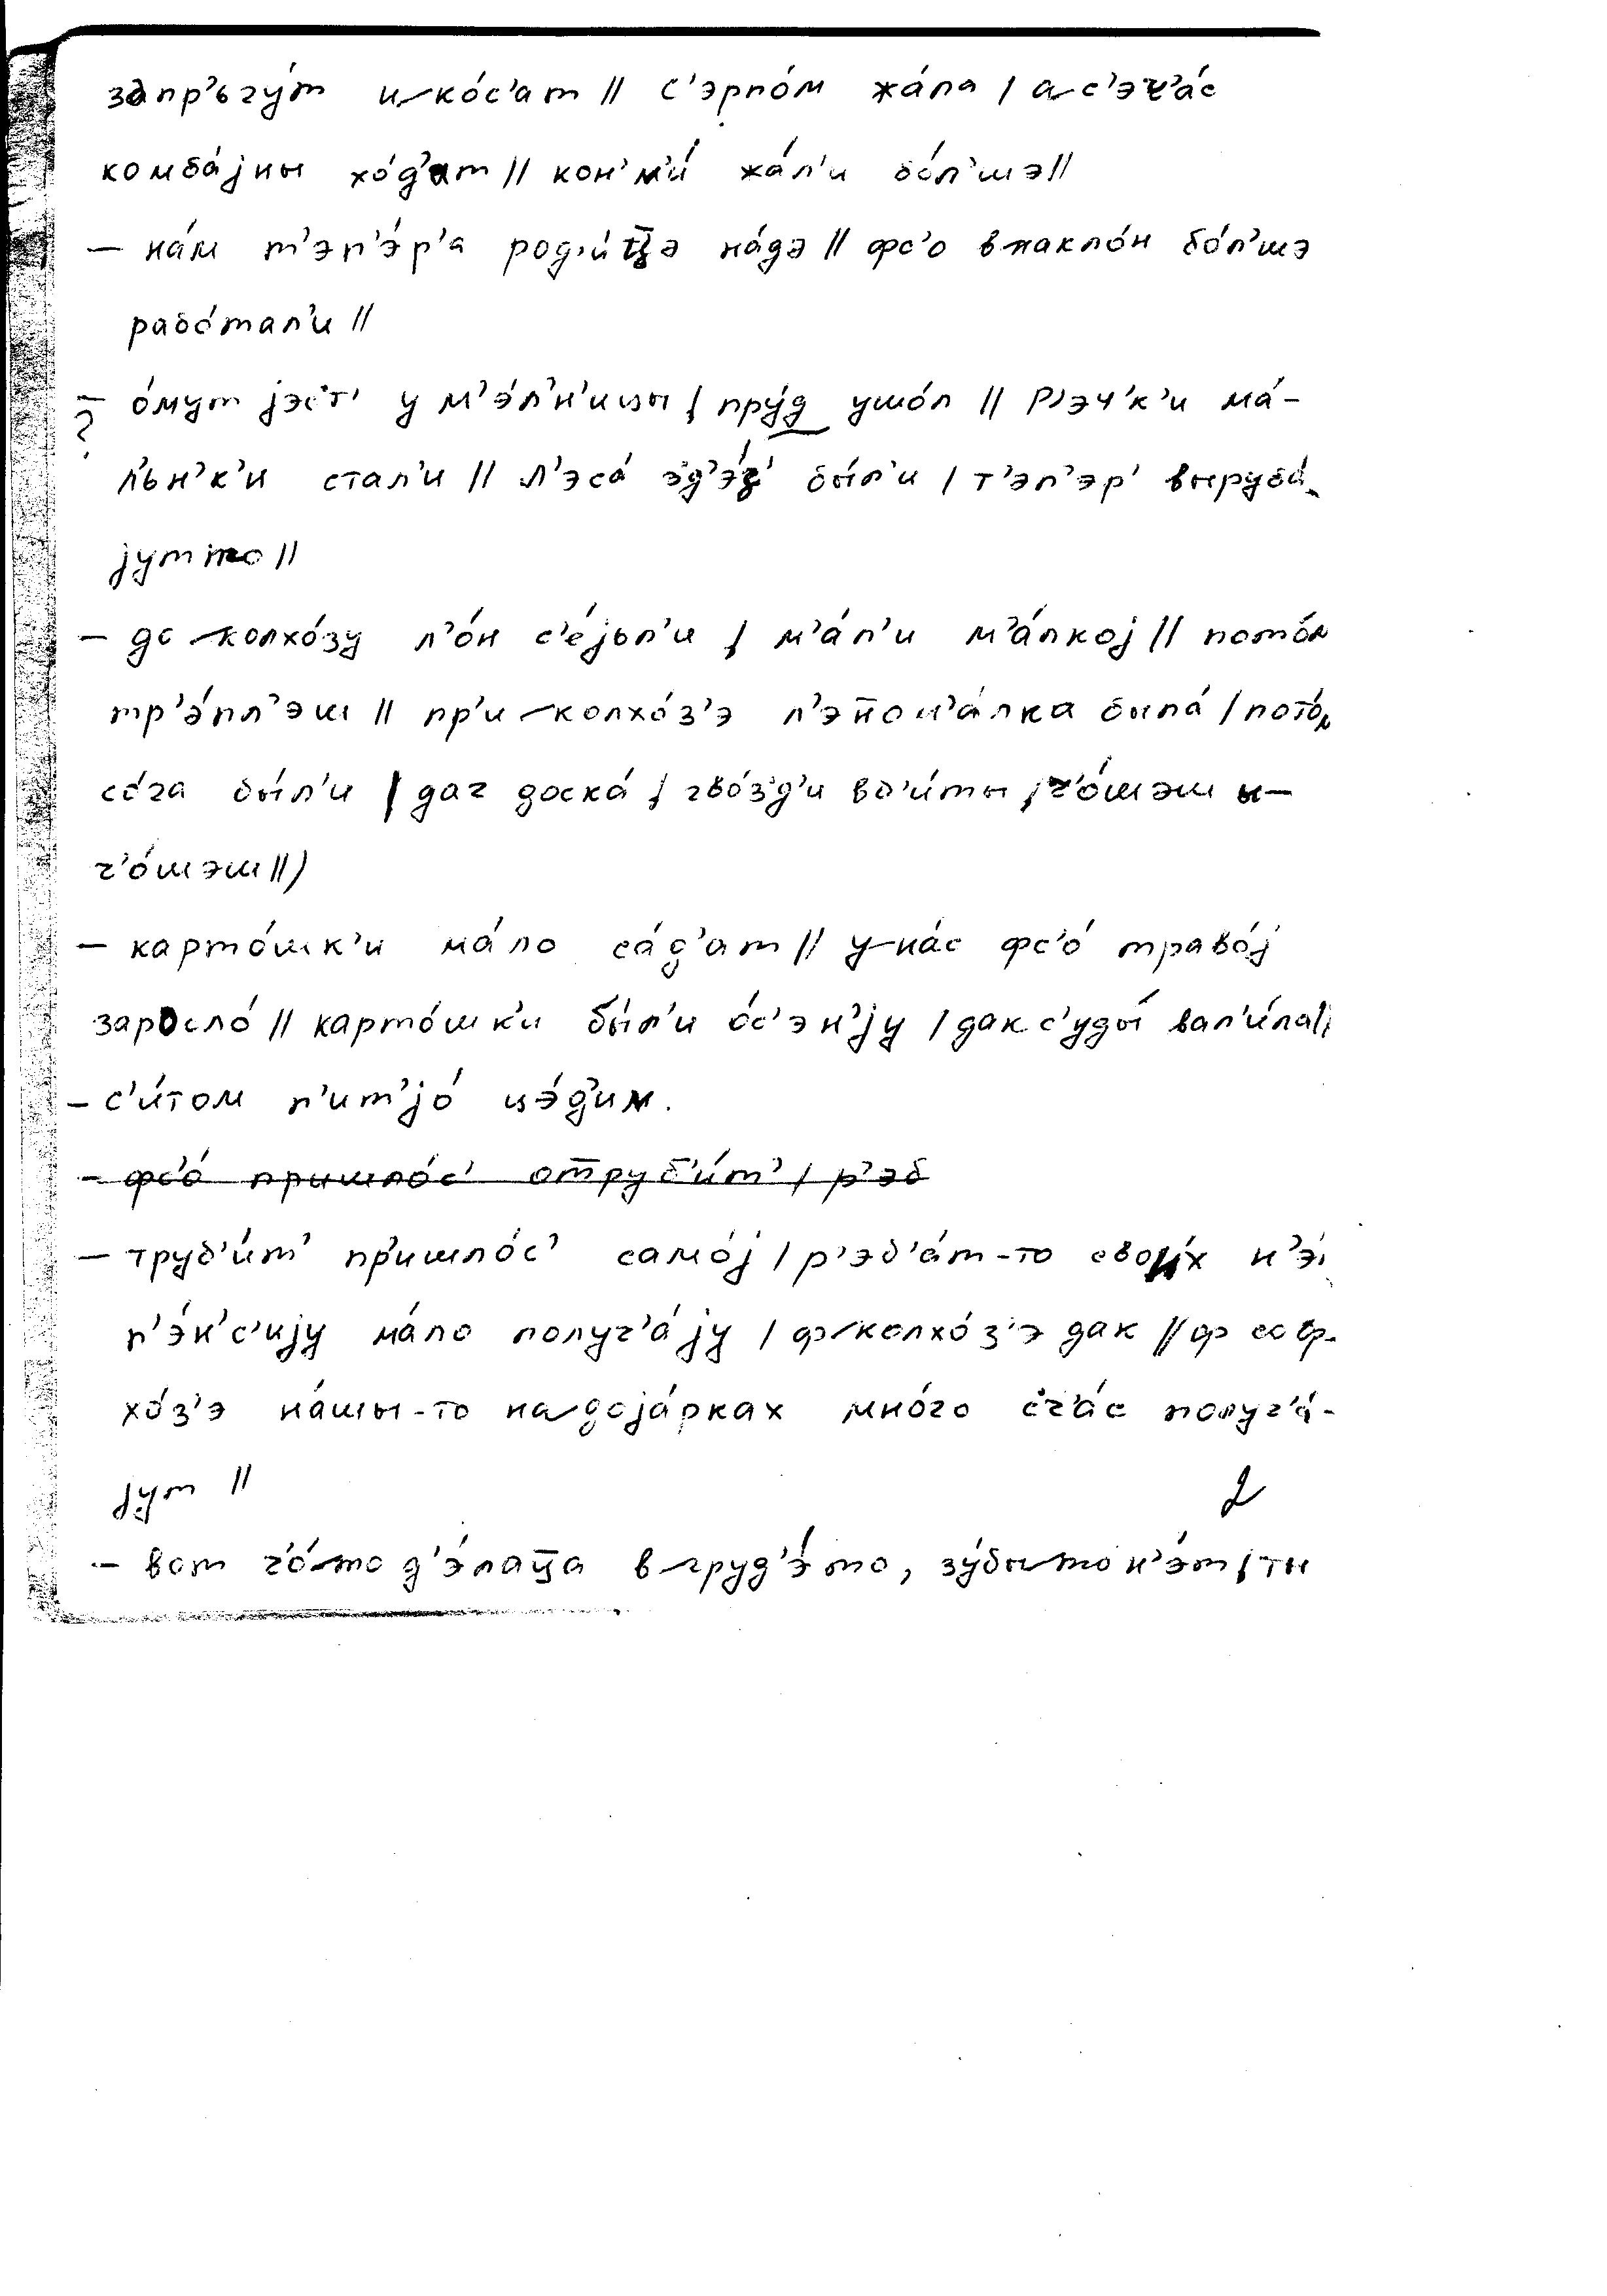 запр'ьгу́т и‿ко́с'ат // с'эрпо́м жа́ла / а‿с'эч'а́с
комба́jны хо́д'ат // кон'м'и́ жа́л'и бо́л'шэ //
— на́м т'эп'э́р'а род'и́ц̄э на́дэ // фс'о внакло́н бо́л'шэ
рабо́тал'и //
— о́мут jэст' у м'э́л'н'ицы / пру́д ушо́л // р'эч'к'и ма́-
?
л'ьн'к'и стал'и // л'эса́ зд'э́з' бы́л'и / т'эп'эр' выруба́-
jут то //
— до‿колхо́зу л'о́н с'е́jьл'и / м'а́л'и м'а́лкоj // пото́м
тр'э́пл'эш // пр'и‿колхо́з'э л'э̄ном'а́лка была́ / пото́м
со́га бы́л'и / даг доска́ / гво́зд'и вб'и́ты / ч'о́шэш ы-
ч'о́шэш //)
— карто́шк'и ма́ло са́д'ат // у‿на́с фс'о́ траво́j
заросло́ // карто́шк'и бы́л'и о́с'эн'jу / дак с'уды́ вал'и́ла //
— с'и́том п'ит'jо́ цэ́д'им.
— фс'о́ пришло́с' отруб'и́т' / р'эб
— труб'и́т' пр'ишло́с' само́j / р'эб'а́т-то свои́х н'э́т
п'э́н'с'иjу ма́ло получ'а́jу / ф‿колхо́з'э дак // ф соф-
хо́з'э на́шы-то на‿доjа́рках мно́го сч'а́с получ'а́-
jут //
2
— вот ч'о́‿то д'э́лац̄а в‿груд'э́ то, зу́бы‿то н'э́т / ты